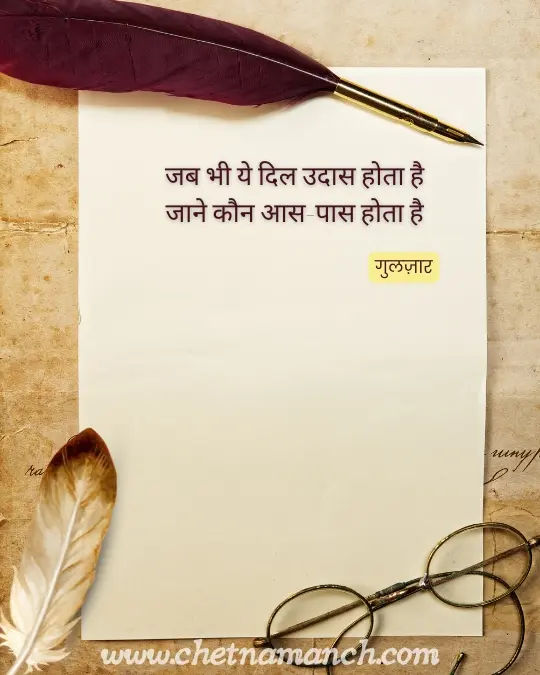 जब भी ये दिल उदास होता है
जाने कौन आस-पास होता है
गुलज़ार
www.chetnamanch.com